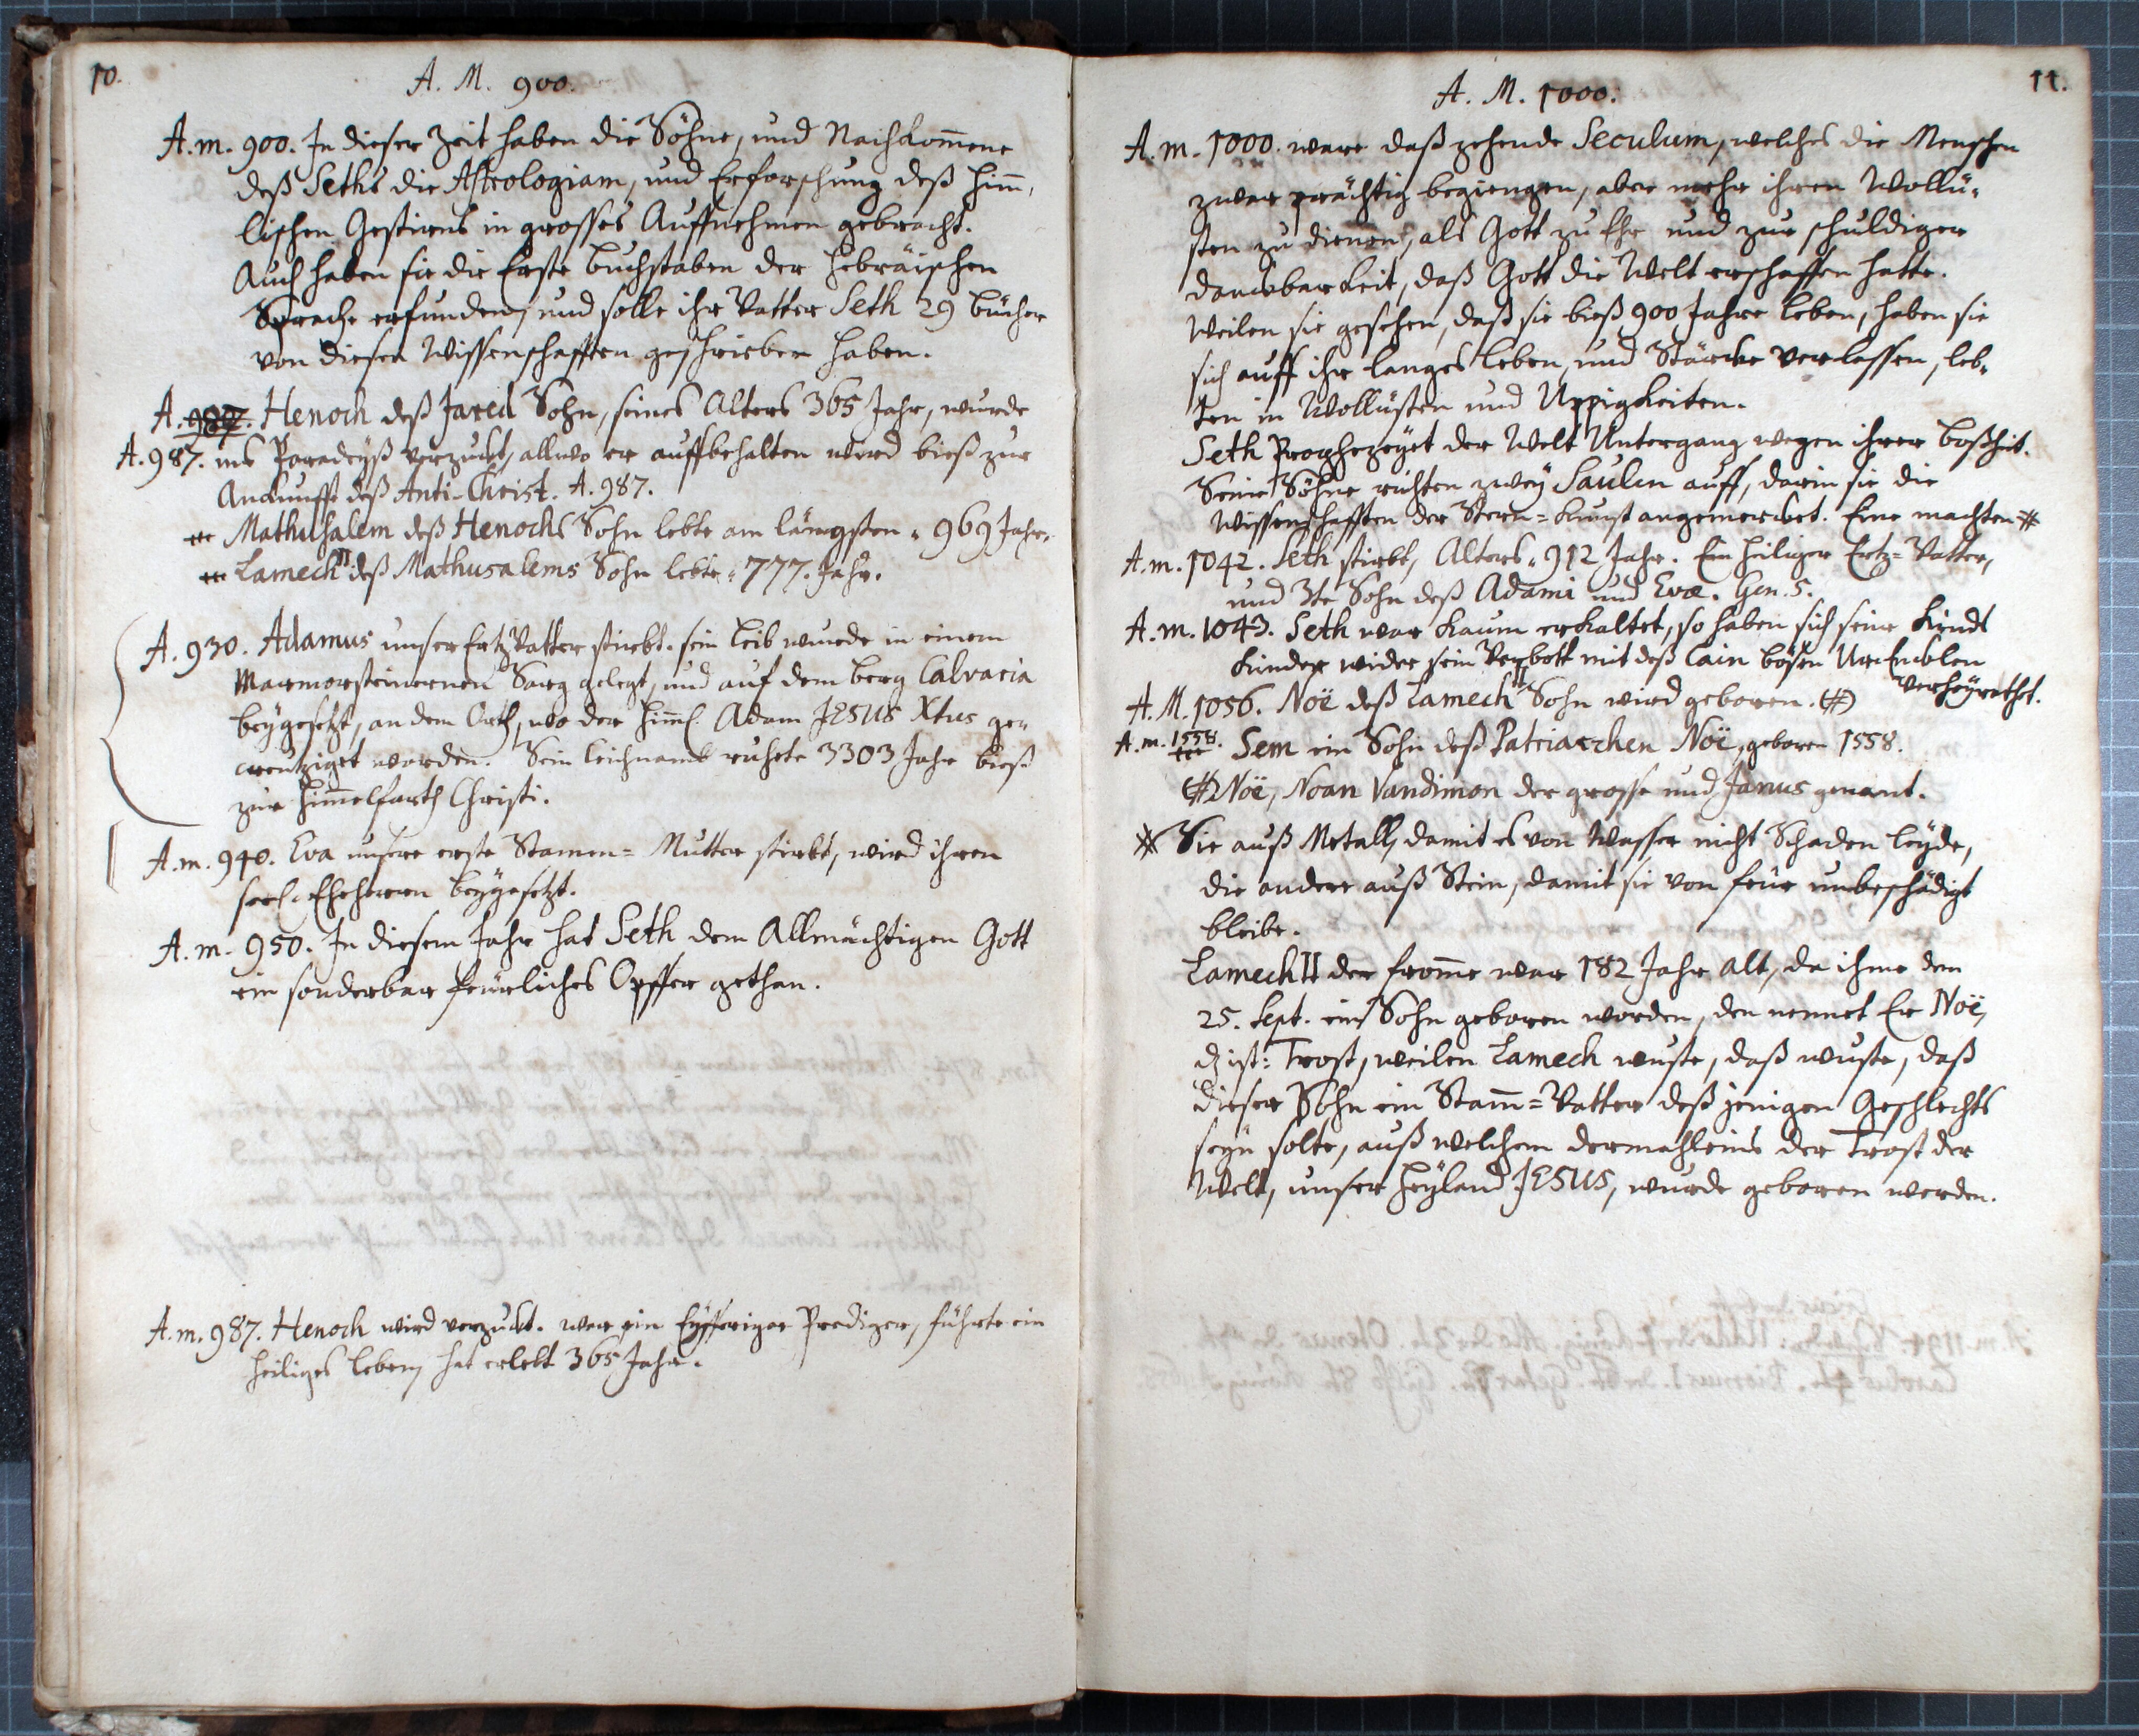 10.
A. M. 900.
A. m. 900. In dieser Zeit haben die Söhne, und Nachkom̄ene
deß Seths die Astrologiam, und Erforschung deß him̄-
lischen Gestirns in grosses Auffnehmen gebracht.
Auch haben sie die Erste buchstaben der Hebräischen
Sprache erfunden, und solle ihr Vatter Seth 29 bücher
von diesen Wissenschafften geschrieben haben.
A. 987. Henoch deß Jared Sohn, seines Alters 365 Jahr, wurde
A. 987. ins Paradeyß verzuckt, allwo er auffbehalten wird bieß zur
Ankunfft deß Anti-Christ. A. 987.
Mathusalem deß Henochs Sohn lebte am längsten 969 Jahr.
Lamech II deß Mathusalems Sohn lebte 777. Jahr.
A. 930. Adamus unser Ertz Vatter stirbt. sein leib wurde in einem
Marmorsteinernen Sarg gelegt, und auf dem berg Calvaria
beygesetzt, an dem Orth, wo der him̄l. Adam JESUS Xtus ge-
creutziget worden. Sein leichnamb ruhete 3303 Jahr bieß
zur Him̄elfarth Christi.
A. m. 940. Eva unsere erste Stamen= Mutter stirbt, wird ihren
seel. Eheherren beygesetzt.
A. m. 950. In diesem Jahr hat Seth dem Allmächtigen Gott
ein sonderbar feürliches Opffer gethan.
A. m. 987. Henoch wird verzuckt. war ein Eyfferiger Prediger, führte ein
heiliges leben, hat erlebt 365 Jahr.
11.
A. M. 1000.
A. m. 1000. ware daß zehende Seculum, welches die Menschen
zwar prächtig begiengen, aber mehr ihren Wollü-
sten zu dienen, als Gott zu Ehr und zur schuldiger
danckbarkeit, daß Gott die Welt erschaffen hatte.
Weilen sie gesehen, daß sie bieß 900 Jahre leben, haben sie
sich auff ihr langes leben, und Stärcke verlassen, leb-
ten in Wollüsten und Uppigkeiten.
Seth Prophezeyet der Welt Untergang wegen ihrer boßheit.
Seine Söhne richten zwey Saulen auff, darin sie die
Wissenschafften der Stern=kunst angemercket. Eine machten #
A. m. 1042. Seth stirbt, Alters 912 Jahr. Ein heiliger Ertz=Vatter,
und 3te Sohn deß Adami und Evæ. Gen. 5.
A. m. 1043. Seth war kaum erkaltet, so haben sich seine Kinds
kinder wider sein Verbott mit deß Cain bösen Ur Encklen
verheyrathet.
A. M. 1056. Noë deß Lamech II Sohn wird geboren. (#)
A. m. 1558. Sem ein Sohn deß Patriarchen Noë, geboren 1558.
(#) Noë, Noan Vandimon der grosse und Janus genant.
# Sie auß Metall, damit es von Wasser nicht Schaden leyde,
die andere auß Stein, damit sie von feür unbeschädigt
bleibe.
Lamech II der from̄e war 182 Jahr alt, da ihme den
25. Sept. ein Sohn geboren worden, den nennet Er Noë,
dz ist: Trost, weilen Lamech wuste, daß wuste, daß
dieser Sohn ein Stam̄=Vatter deß jenigen Geschlechts
seyn solte, auß welchem dermahleins der Trost der
Welt, unser Heyland JESUS, wurde geboren werden.